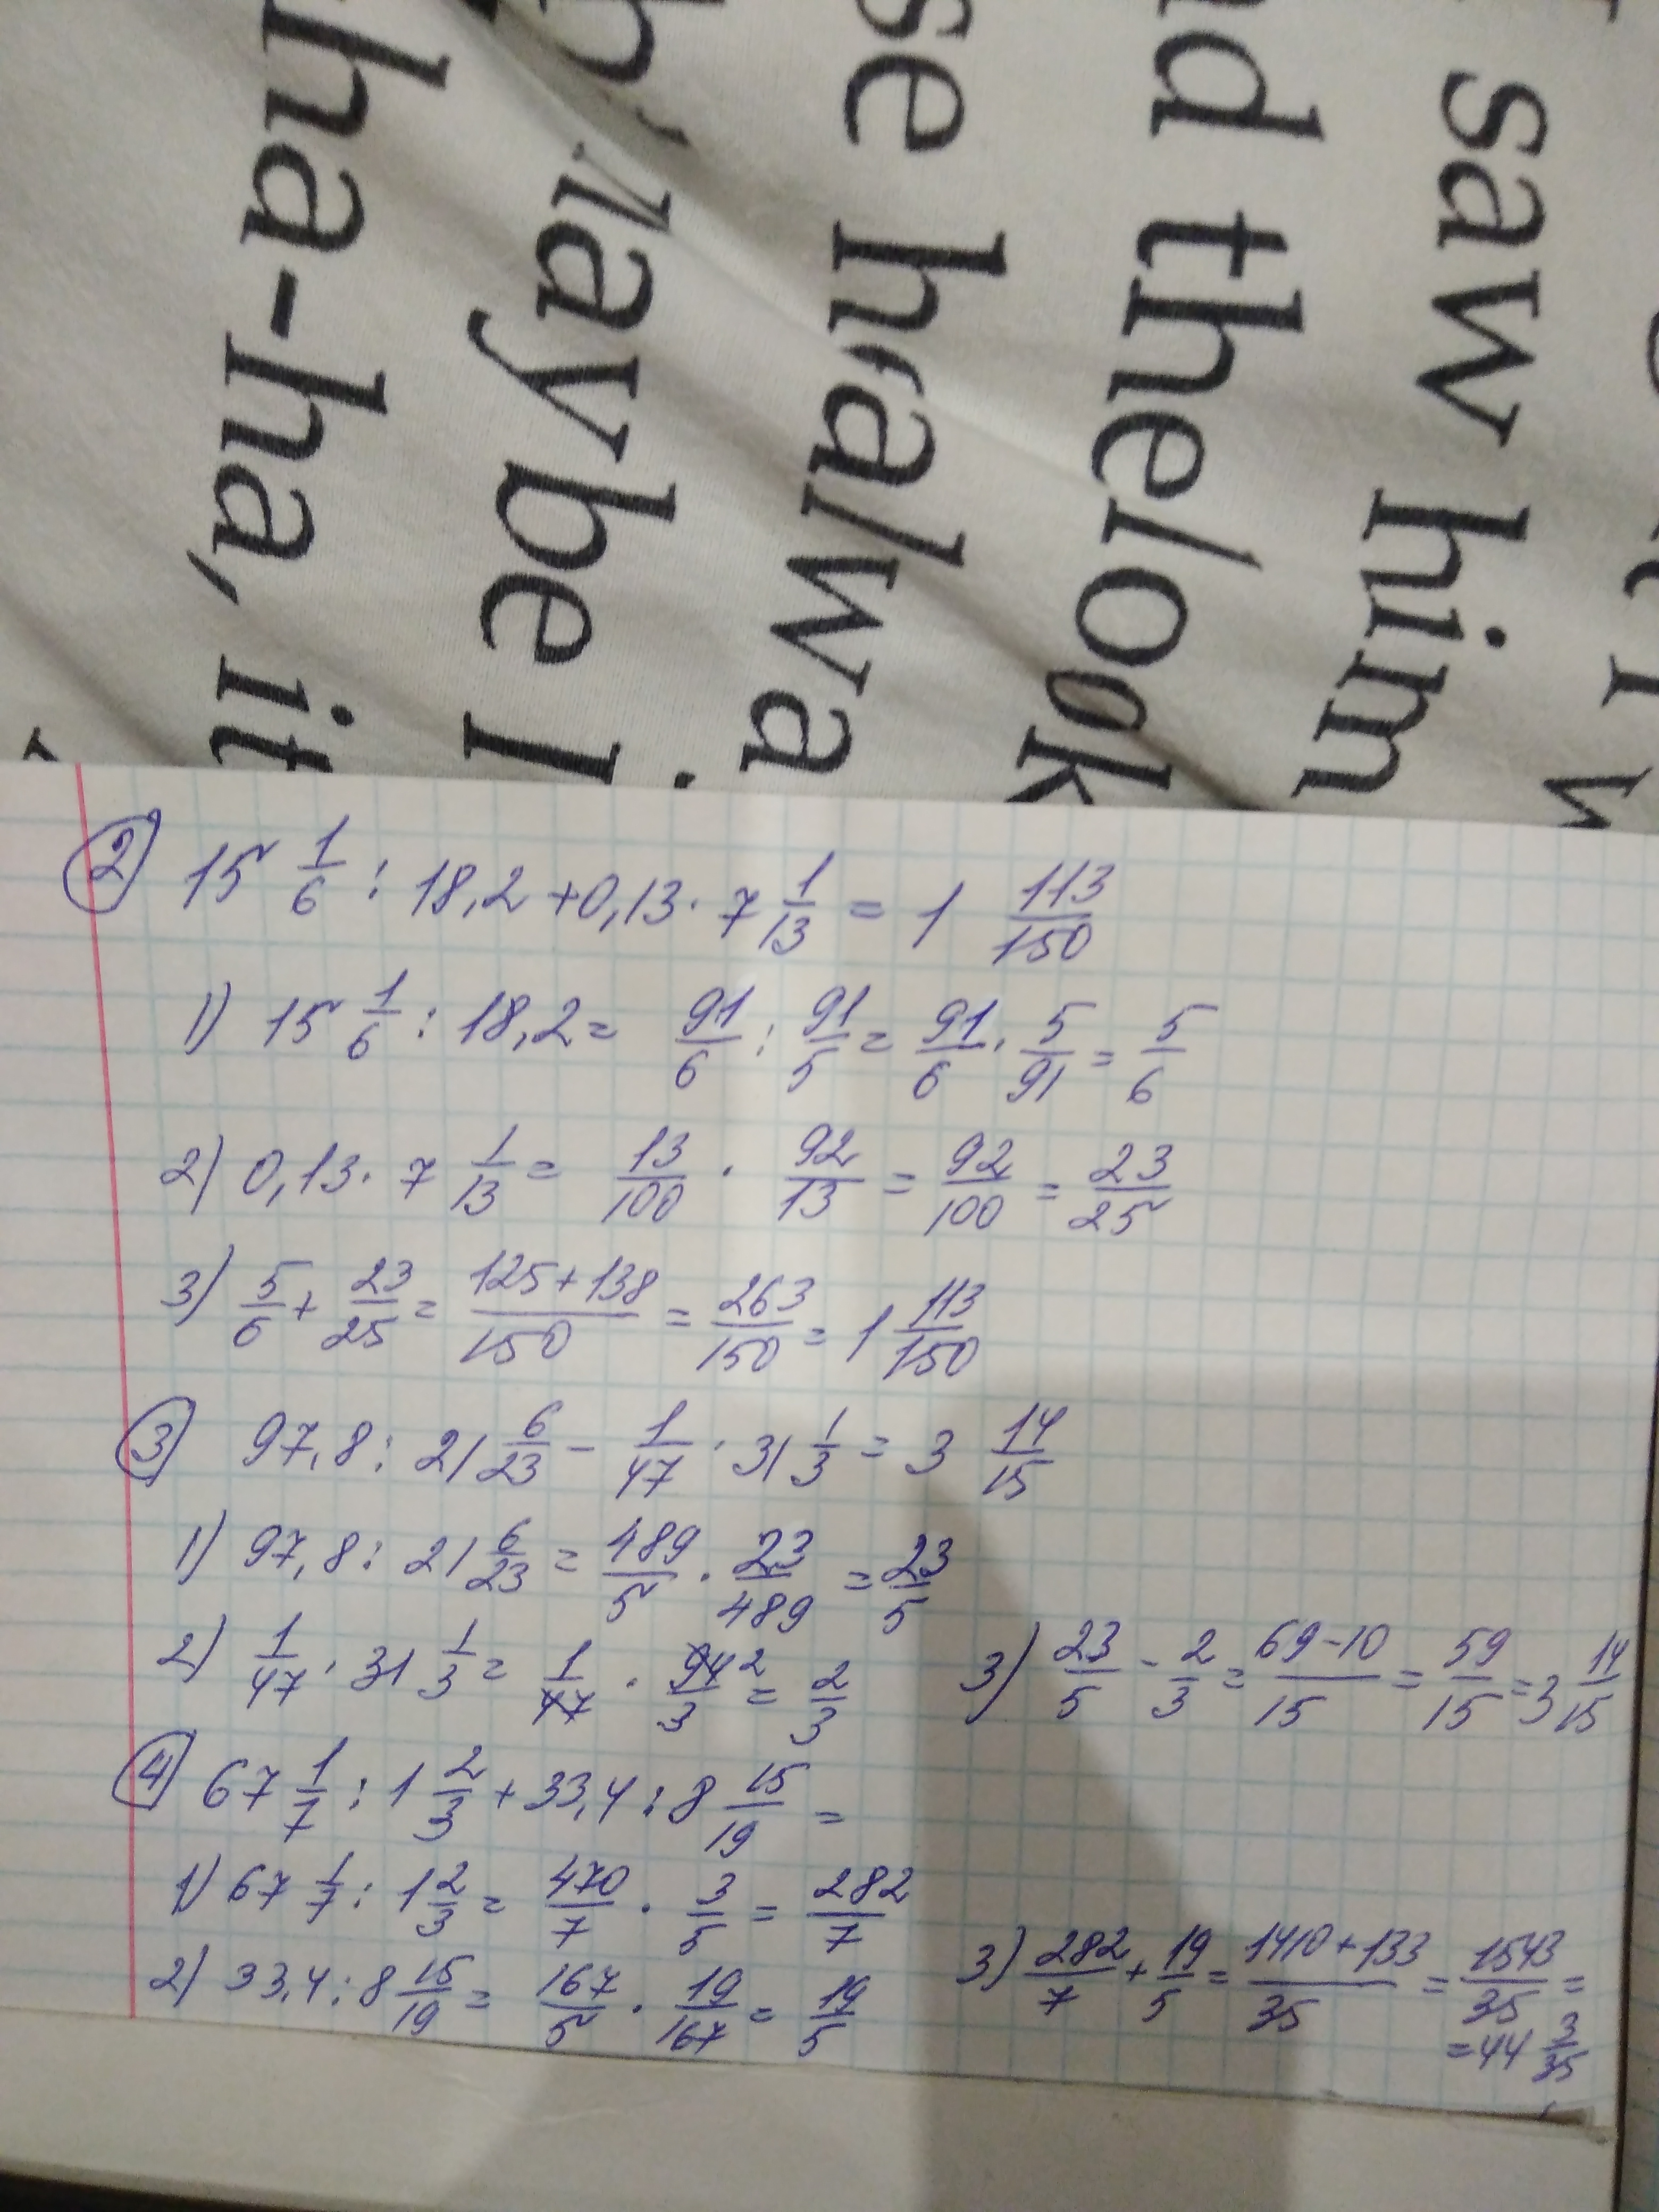 ha-ha, it
laybe I
se halwa
nd the look
saw him
② 15 1/6 : 18,2 + 0,13 · 7 1/13 = 1 113/150
1) 15 1/6 : 18,2 = 91/6 : 91/5 = 91/6 · 5/91 = 5/6
2) 0,13 · 7 1/13 = 13/100 · 92/13 = 92/100 = 23/25
3) 5/6 + 23/25 = (125+138)/150 = 263/150 = 1 113/150
③ 97,8 : 21 6/23 - 1/47 · 31 1/3 = 3 14/15
1) 97,8 : 21 6/23 = 489/5 · 23/489 = 23/5
2) 1/47 · 31 1/3 = 1/47 · 94/3 2 = 2/3
3) 23/5 - 2/3 = (69-10)/15 = 59/15 = 3 14/15
④ 67 1/7 : 1 2/3 + 33,4 : 8 15/19 =
1) 67 1/7 : 1 2/3 = 470/7 · 3/5 = 282/7
2) 33,4 : 8 15/19 = 167/5 · 19/167 = 19/5
3) 282/7 + 19/5 = (1410+133)/35 = 1543/35 =
= 44 3/35